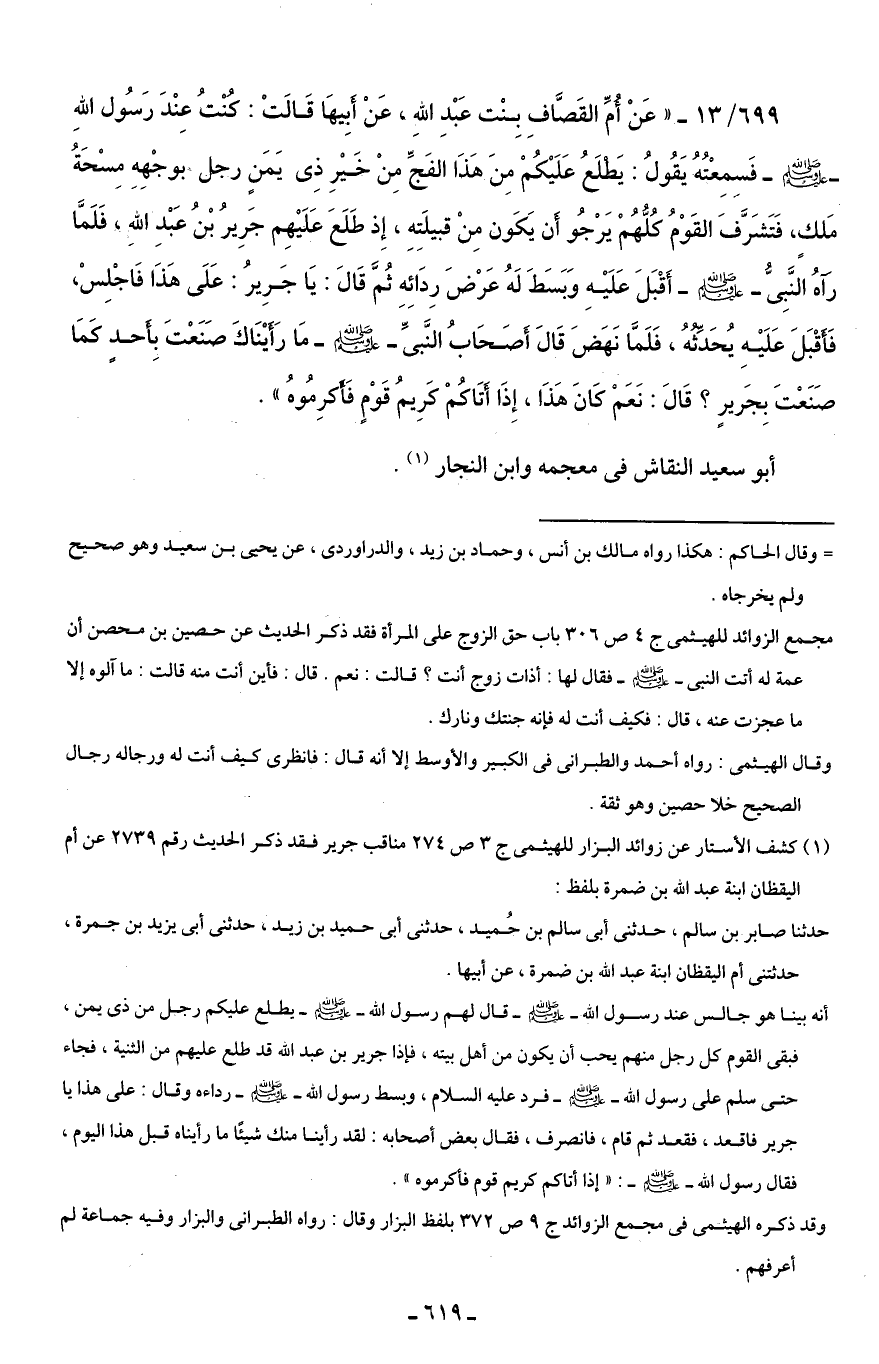 ٦٩٩/ ١٣ ـ « عَنْ أُمِّ القَصَّافِ بِنْت عَبْدِ الله ، عَنْ أَبِيهَا قَالَتْ : كُنْتُ عِنْدَ رَسُولِ الله
ـ ﷺ ـ فَسمِعْتُهُ يَقُولُ : يَطْلَعُ عَلَيْكُمْ مِنَ هَذَا الفَجِّ مِنْ خَيْرِ ذِى يَمَنٍ رجل بوجْهِهِ مسْحَةُ
مَلَك، فَتَشَرَّفَ القَوْمُ كُلُّهُمْ يَرْجُو أَن يَكُونَ مِنْ قبيلَتِهِ ، إِذ طَلَعَ عَلَيْهِم جَرِيرُ بْنُ عَبْدِ الله ، فَلَمَّا
رَآهُ النَّبِىُّ ـ ﷺ ـ أَقْبَلَ عَلَيْهِ وَبَسَطَ لَهُ عَرْضَ رِدَائِهِ ثُمَّ قَالَ : يَا جَرِيرُ : عَلَى هَذَا فَاجْلِسْ،
فَأَقْبَلَ عَلَيْهِ يُحَدِّثُهُ ، فَلَمَّا نَهَضَ قَالَ أَصَحَابُ النَّبىِّ ـ ﷺ ـ مَا رَأَيْنَاكَ صَنَعْتَ بِأَحدٍ كَمَا
صَنَعْتَ بِجَرِيرٍ ؟ قَالَ : نَعَمْ كَانَ هَذَا ، إِذَا أَتَاكُمْ كَرِيمُ قَوْمٍ فَأَكرِمُوهُ » .
أبو سعيد النقاش فى معجمه وابن النجار (١) .
= وقال الحاكم : هكذا رواه مالك بن أنس ، وحماد بن زيد ، والدراوردى ، عن يحيى بن سعيد وهو صحيح
ولم يخرجاه .
مجمع الزوائد للهيثمى ج ٤ ص ٣٠٦ باب حق الزوج على المرأة فقد ذكر الحديث عن حصين بن محصن أن
عمة له أتت النبى ـ ﷺ ـ فقال لها : أذات زوج أنت ؟ قالت : نعم . قال : فأين أنت منه قالت : ما آلوه إلا
ما عجزت عنه ، قال : فكيف أنت له فإنه جنتك ونارك .
وقال الهيثمى : رواه أحمد والطبرانى فى الكبير والأوسط إلا أنه قال : فانظرى كيف أنت له ورجاله رجال
الصحيح خلا حصين وهو ثقة .
(١) كشف الأستار عن زوائد البزار للهيثمى ج ٣ ص ٢٧٤ مناقب جرير فقد ذكر الحديث رقم ٢٧٣٩ عن أم
اليقظان ابنة عبد الله بن ضمرة بلفظ :
حدثنا صابر بن سالم ، حدثنى أبى سالم بن حُميد ، حدثنى أبى حميد بن زيد ، حدثنى أبى يزيد بن جمرة ،
حدثتنى أم اليقظان ابنة عبد الله بن ضمرة ، عن أبيها .
أنه بينا هو جالس عند رسول الله ـ ﷺ ـ قال لهم رسول الله ـ ﷺ ـ يطلع عليكم رجل من ذى يمن ،
فبقى القوم كل رجل منهم يحب أن يكون من أهل بيته ، فإذا جرير بن عبد الله قد طلع عليهم من الثنية ، فجاء
حتى سلم على رسول الله ـ ﷺ ـ فرد عليه السلام ، وبسط رسول الله ـ ﷺ ـ رداءه وقال : على هذا يا
جرير فاقعد ، فقعد ثم قام ، فانصرف ، فقال بعض أصحابه : لقد رأينا منك شيئًا ما رأيناه قبل هذا اليوم ،
فقال رسول الله ـ ﷺ ـ : « إذا أتاكم كريم قوم فأكرموه » .
وقد ذكره الهيثمى فى مجمع الزوائد ج ٩ ص ٣٧٢ بلفظ البزار وقال : رواه الطبرانى والبزار وفيه جماعة لم
أعرفهم .
ـ ٦١٩ ـ